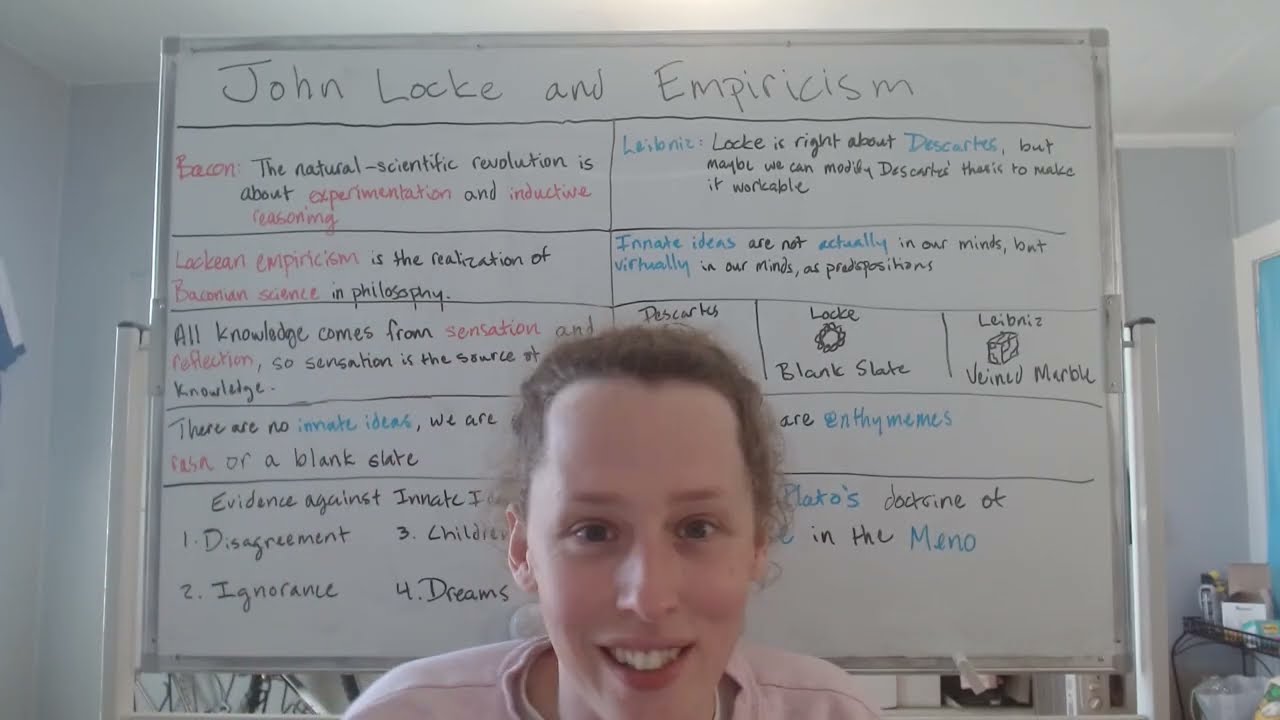 John Locke and Empiricism
Bacon: The natural-scientific revolution is
about experimentation and inductive
reasoning
Lockean empiricism is the realization of
Baconian science in philosophy.
All knowledge comes from sensation and
reflection, so sensation is the source of
knowledge.
There are no innate ideas, we are
rasa or a blank slate
Evidence against Innate
1. Disagreement
3. Children
2. Ignorance
4. Dreams
Leibniz: Locke is right about Descartes, but
maybe we can modify Descartes' thesis to make
it workable
Innate ideas are not actually in our minds, but
virtually in our minds, as predispositions
Descartes
Locke
Blank Slate
Leibniz
Veined Marble
are enthymemes
Plato's doctrine of
in the Meno